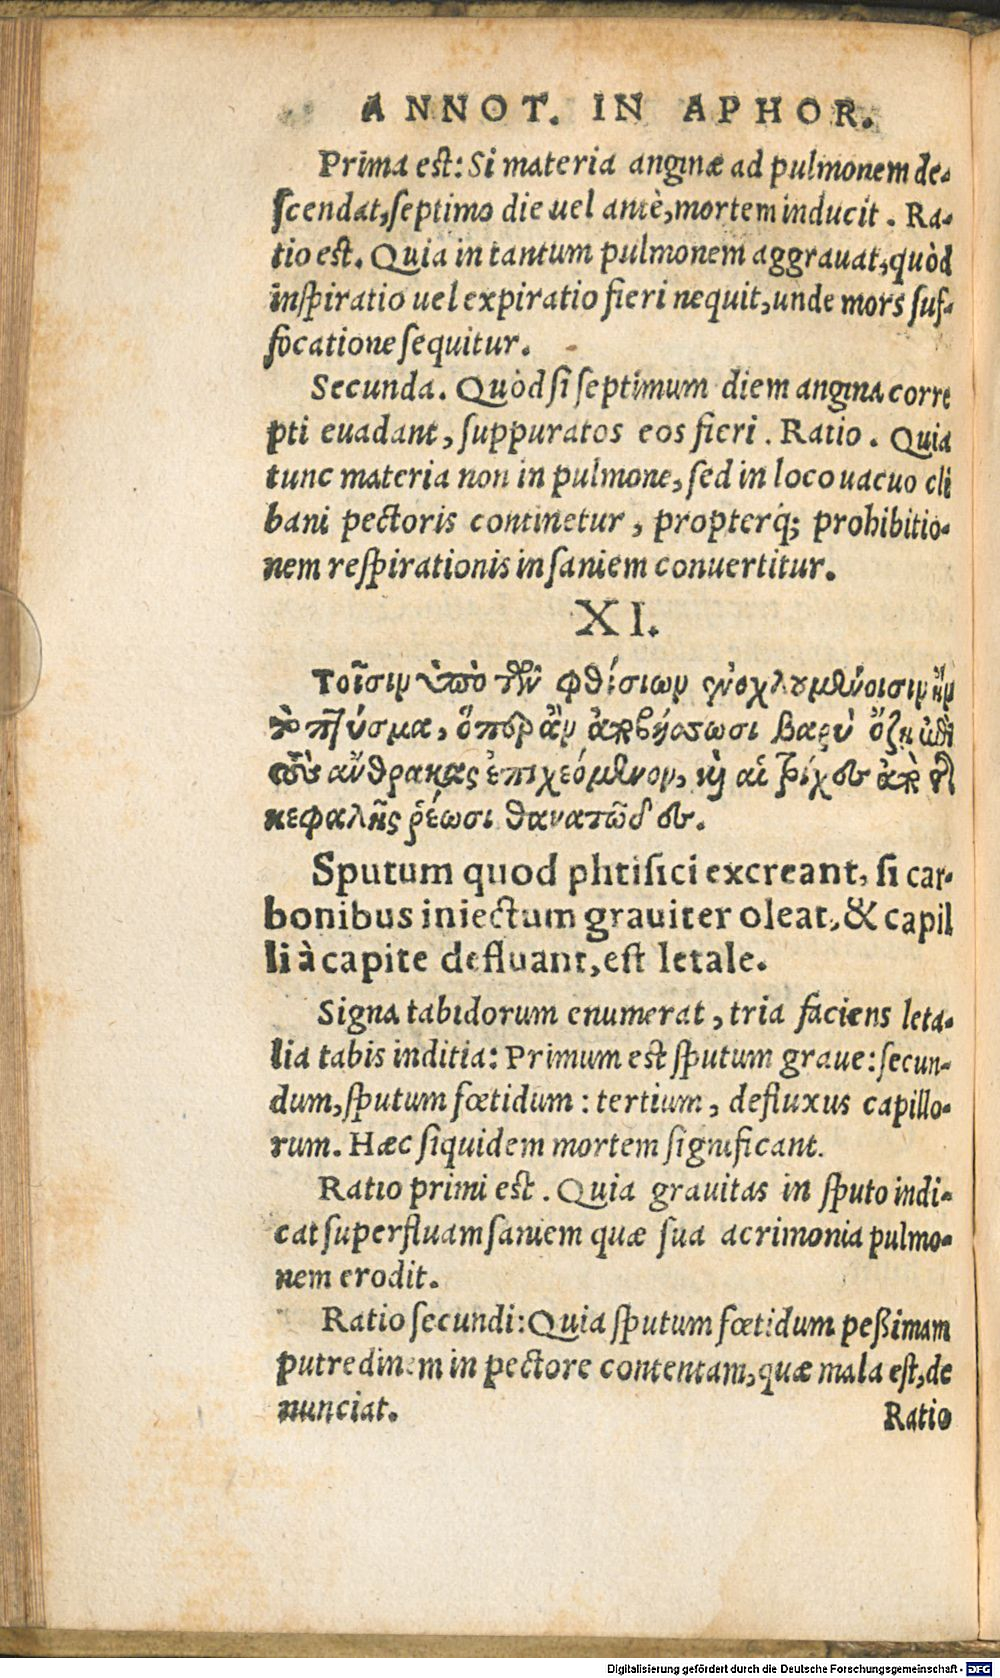 ANNOT. IN APHOR.
Prima est: Si materia anginæ ad pulmonem de-
scendat, septimo die uel antè, mortem inducit. Ra-
tio est. Quia in tantum pulmonem aggrauat, quòd
inspiratio uel expiratio fieri nequit, unde mors suf-
focatione sequitur.
Secunda. Quòd si septimum diem angina corre
pti euadant, suppuratos eos fieri. Ratio. Quia
tunc materia non in pulmone, sed in loco uacuo cli
bani pectoris continetur, propterq; prohibitio-
nem respirationis in saniem conuertitur.
XI.
Τοῖσιν ὑπὸ τῶν φθίσιων ἐνοχλουμένοισιν ἢν
τὸ πτύσμα, ὅπερ ἂν ἀποβήσσωσι βαρὺ ὄζῃ ἐπὶ
τοὺς ἄνθρακας ἐπιχεόμενον, καὶ αἱ τρίχες ἀπὸ τῆς
κεφαλῆς ῥέωσι θανατῶδες.
Sputum quod phtisici excreant, si car-
bonibus iniectum grauiter oleat, & capil
li à capite defluant, est letale.
Signa tabidorum enumerat, tria faciens leta-
lia tabis inditia: Primum est sputum graue: secun-
dum, sputum fœtidum: tertium, defluxus capillo-
rum. Hæc siquidem mortem significant.
Ratio primi est. Quia grauitas in sputo indi-
cat superfluam saniem quæ sua acrimonia pulmo-
nem erodit.
Ratio secundi: Quia sputum fœtidum peßimam
putredinem in pectore contentam, quæ mala est, de
nunciat.
Ratio
Digitalisierung gefördert durch die Deutsche Forschungsgemeinschaft - DFG